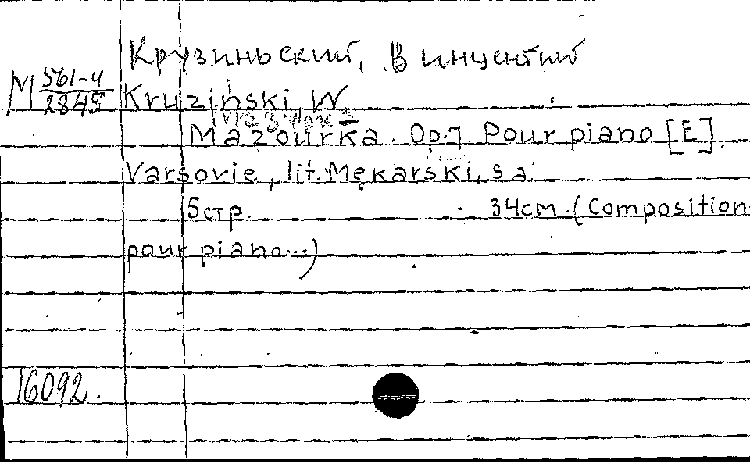 Крузиньский, Винцентий
М 561-4
2845
Kruzinski, W.
Mazourka. Op.7 Pour piano [E]
Varsovie, lit. Mękarski, s a
5 стр. 34cm. (Composition
pour piano...)
16092.